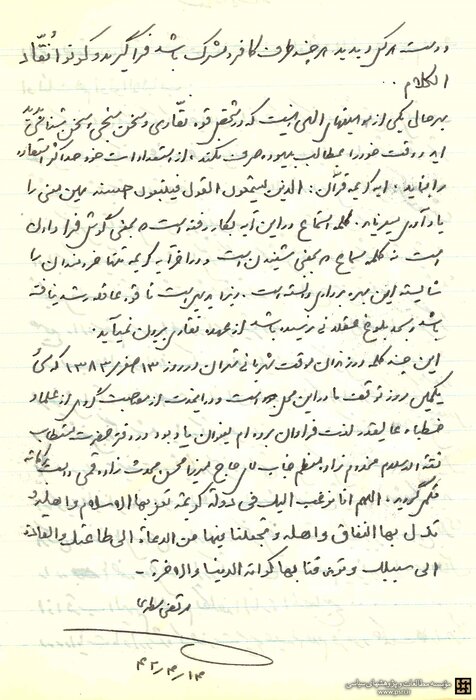 دست هر کس دیدید هر چند طرف کافر و مشرک باشد فرا گیرید و کونوا نقّاد
الکلام ..
بهرحال یکی از موهبتهای الهی اینست که در شخص قوه نقّادی و سخن سنجی و سخن شناسی پدید
آید و وقت خود را بمطالب بیهوده صرف نکند، از استعدادات خود حداکثر استفاده
را بنماید. آیه کریمه قرآن: الذین یستمعون القول فیتبعون احسنه همین معنی را
یادآوری مینماید. کلمه استماع در این آیه بکار رفته است که بمعنی گوش فرا دادن
است نه کلمه سماع که بمعنی شنیدن است و در آخر آیه کریمه تنها خردمندان را
شایسته این بهره برداری دانسته است. زیرا بدیهی است تا قوه عاقله رشد یافته
باشد و بحد بلوغ عقلانی نرسیده باشد از عهده نقادی برون نمیآید.
این چند کلمه در زندان موقت شهربانی تهران در روز ۱۳ صفر ۱۳۸۳ که سی
یکمین روز توقف ما در این محل است و در این مدت از مصاحبت گروهی از علماء و
خطباء عالیقدر لذت فراوان برده ام بعنوان یادبود در دفتر حضرت مستطاب
ثقة الاسلام مخدوم زاده معظم جناب آقای حاج میرزا محسن محدث زاده قمی دامت برکاته
قلمی گردید. اللهم انا نرغب الیک فی دولة کریمة تعز بها الاسلام و اهله و
تذل بها النفاق و اهله و تجعلنا فیها من الدعاة الی طاعتک و القادة
الی سبیلک و ترزقنا بها کرامة الدنیا و الاخرة. -
مرتضی مطهری
۴۲/۴/۱۴
مؤسسه مطالعات و پژوهشهای سیاسی
www.psri.ir